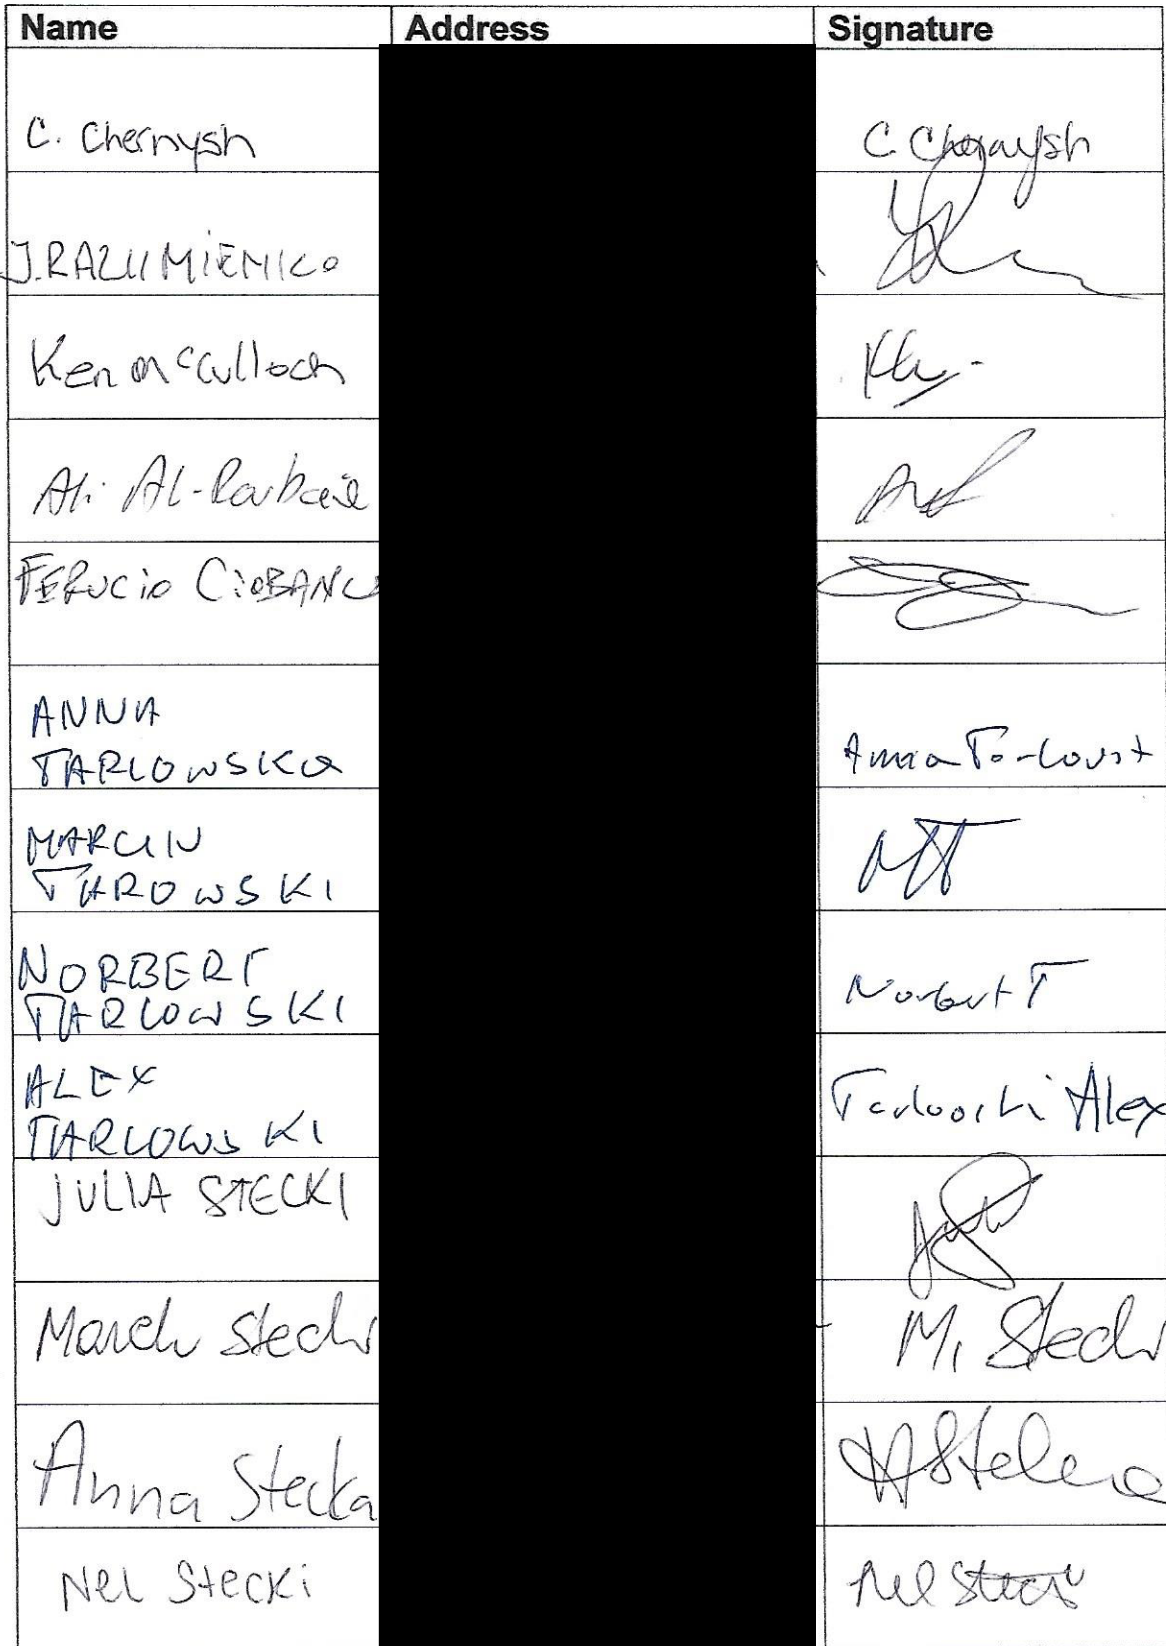 Name Address Signature
C. Chernysh C. Chernysh
J. RAZUMIENKO
Ken McCulloch
Ali Al-
FERUCIO CIOBANU
ANNA
TARLOWSKA Anna
MARCIN
TAROWSKI MT
NORBERT
TARLOWSKI Norbert T
ALEX
TARLOWSKI Tarlowski Alex
JULIA STECKI
Stecki M. Stecki
Anna Stecka
Nel Stecki Nel Stecki